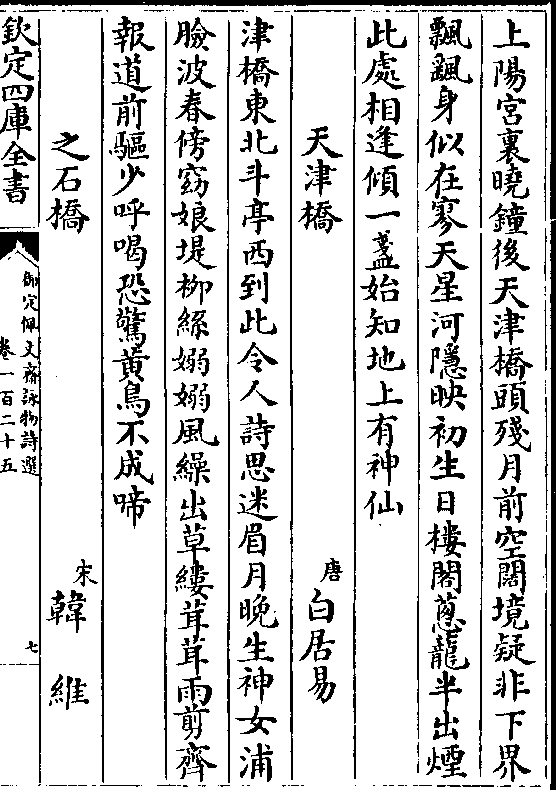 上陽宮裏曉鐘後天津橋頭殘月前空闊境疑非下界
飄飄身似在寥天星河隱映初生日樓閣蔥蘢半出煙
此處相逢傾一盞始知地上有神仙
天津橋　唐　白居易
津橋東北斗亭西到此令人詩思迷眉月晚生神女浦
臉波春傍窈娘堤柳絲嫋嫋風繰出草縷茸茸雨剪齊
報道前驅少呼喝恐驚黃鳥不成啼
之石橋　宋　韓　維
欽定四庫全書
御定佩文齋詠物詩選
卷一百二十五
七